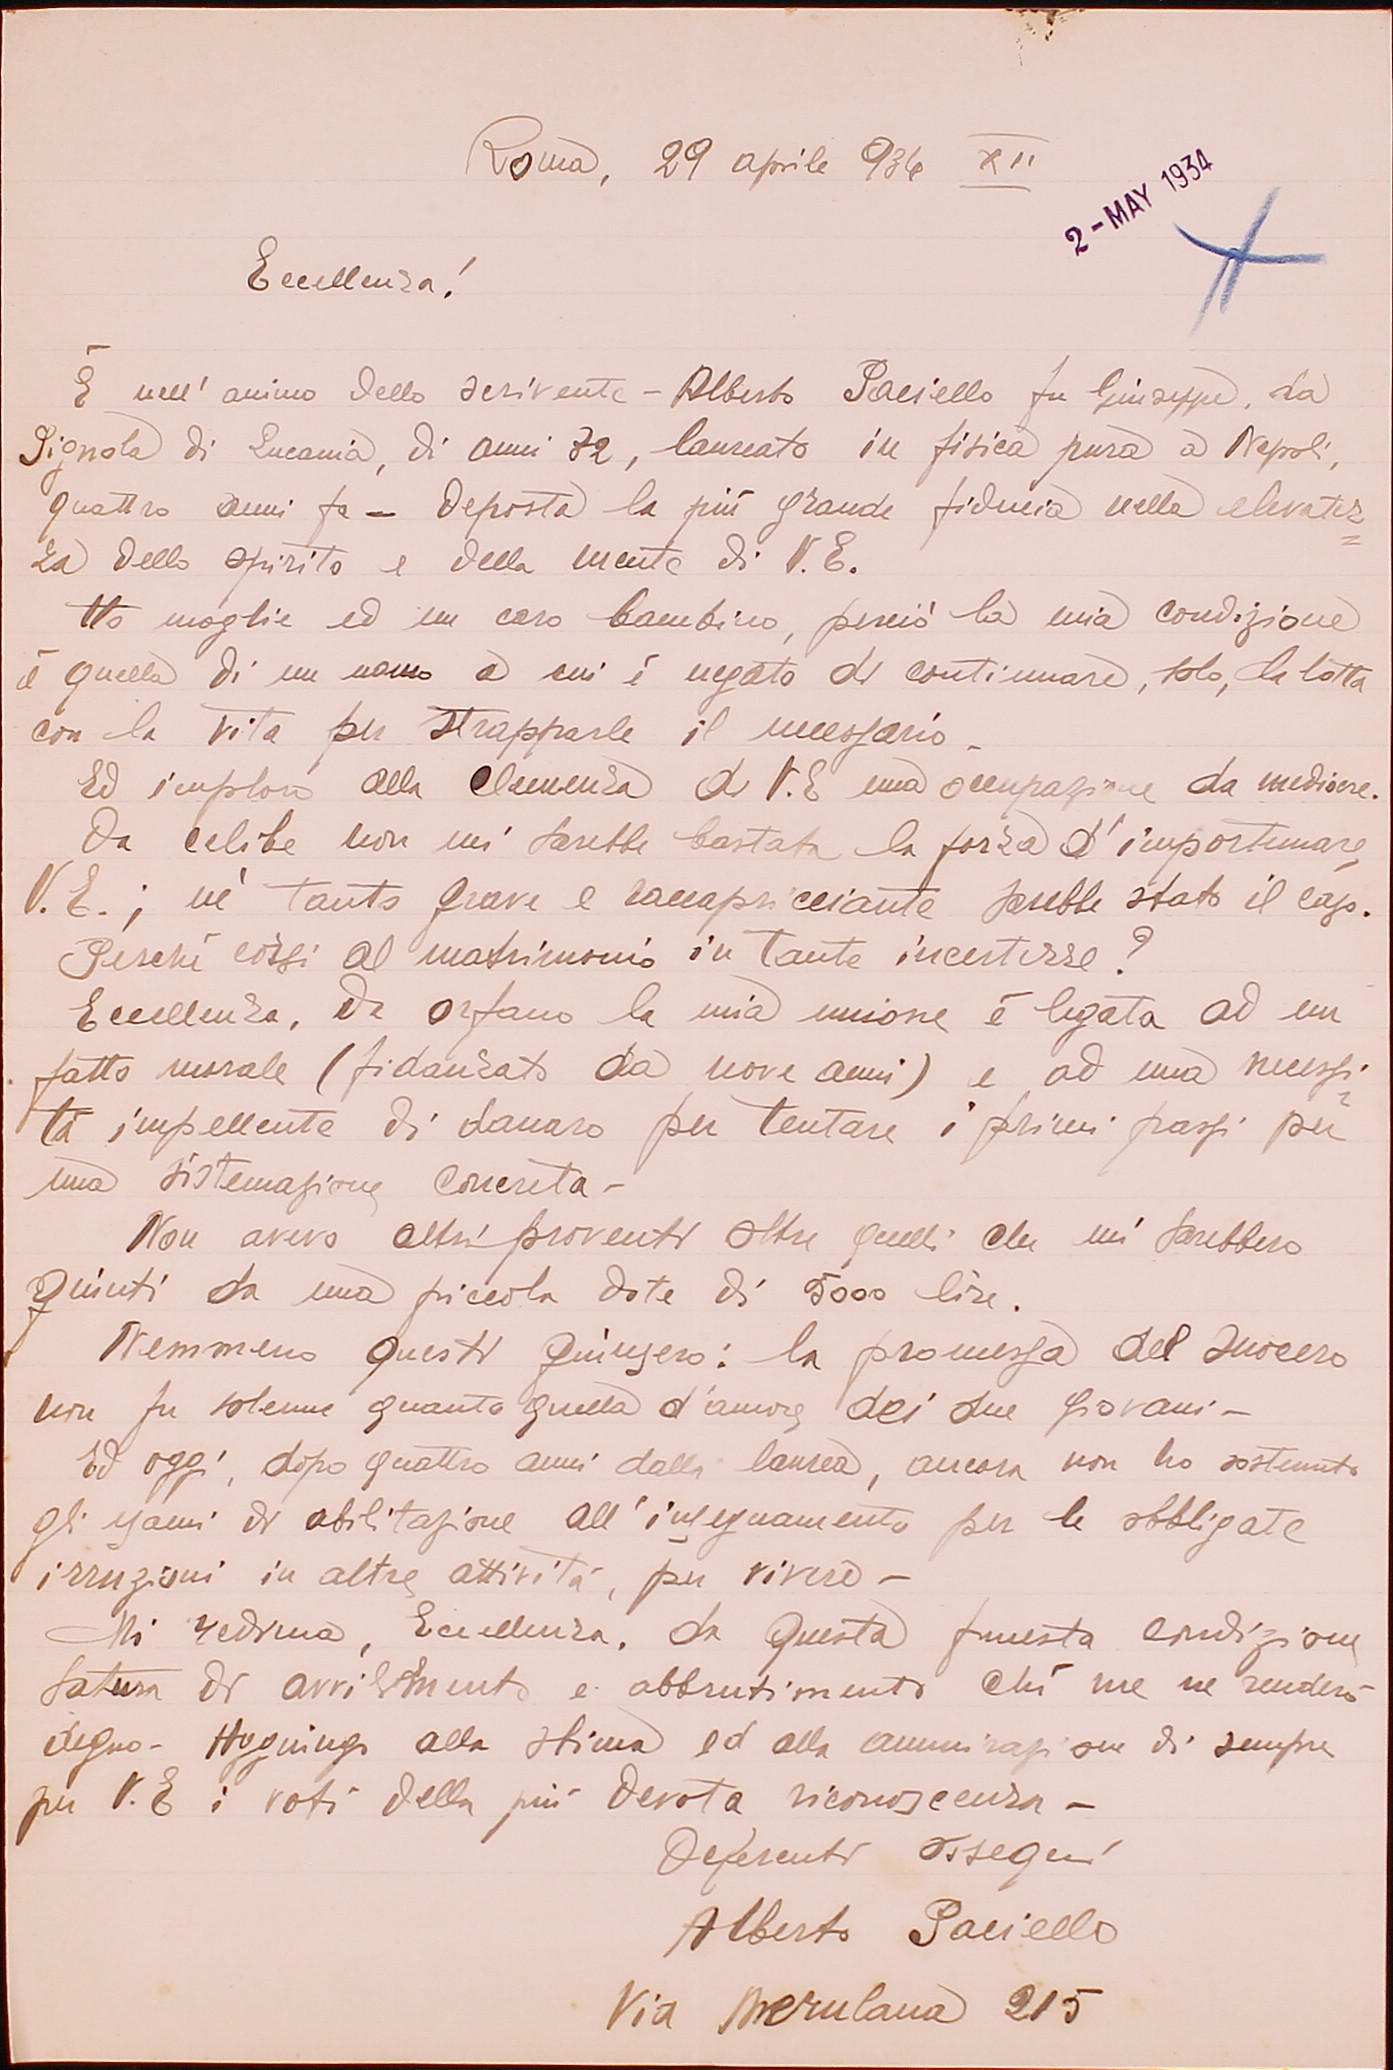 Roma, 29 aprile 934 XII
2 - MAY 1934
Eccellenza!
È nell'animo dello scrivente - Alberto Paciello fu Giuseppe, da
Pignola di Lucania, di anni 32, laureato in fisica pura a Napoli,
quattro anni fa - deposta la più grande fiducia nella elevatez=
za dello spirito e della mente di V.E.
Ho moglie ed un caro bambino, perciò la mia condizione
è quella di un uomo a cui è negato di continuare, solo, la lotta
con la vita per strapparle il necessario -
Ed imploro alla clemenza di V.E una occupazione da mediocre.
Da celibe non mi sarebbe bastata la forza d'importunare
V.E.; nè tanto grave e raccapricciante sarebbe stato il caso.
Perchè corsi al matrimonio in tante incertezze?
Eccellenza, da orfano la mia unione è legata ad un
fatto morale (fidanzato da nove anni) e ad una necessi=
tà impellente di danaro per tentare i primi passi per
una sistemazione concreta -
Non avevo altri proventi oltre quelli che mi sarebbero
giunti da una piccola dote di 5000 lire.
Nemmeno questi giunsero: la promessa del suocero
non fu solenne quanto quella d'amore dei due giovani -
Ed oggi, dopo quattro anni dalla laurea, ancora non ho sostenuto
gli esami di abilitazione all'insegnamento per le obbligate
irruzioni in altre attività, per vivere -
Mi redima, Eccellenza, da questa funesta condizione
satura di avvilimento e abbrutimento chè me ne renderò
degno - Aggiungo alla stima ed alla ammirazione di sempre
per V.E i voti della più devota riconoscenza -
Deferenti ossequi
Alberto Paciello
Via Merulana 215